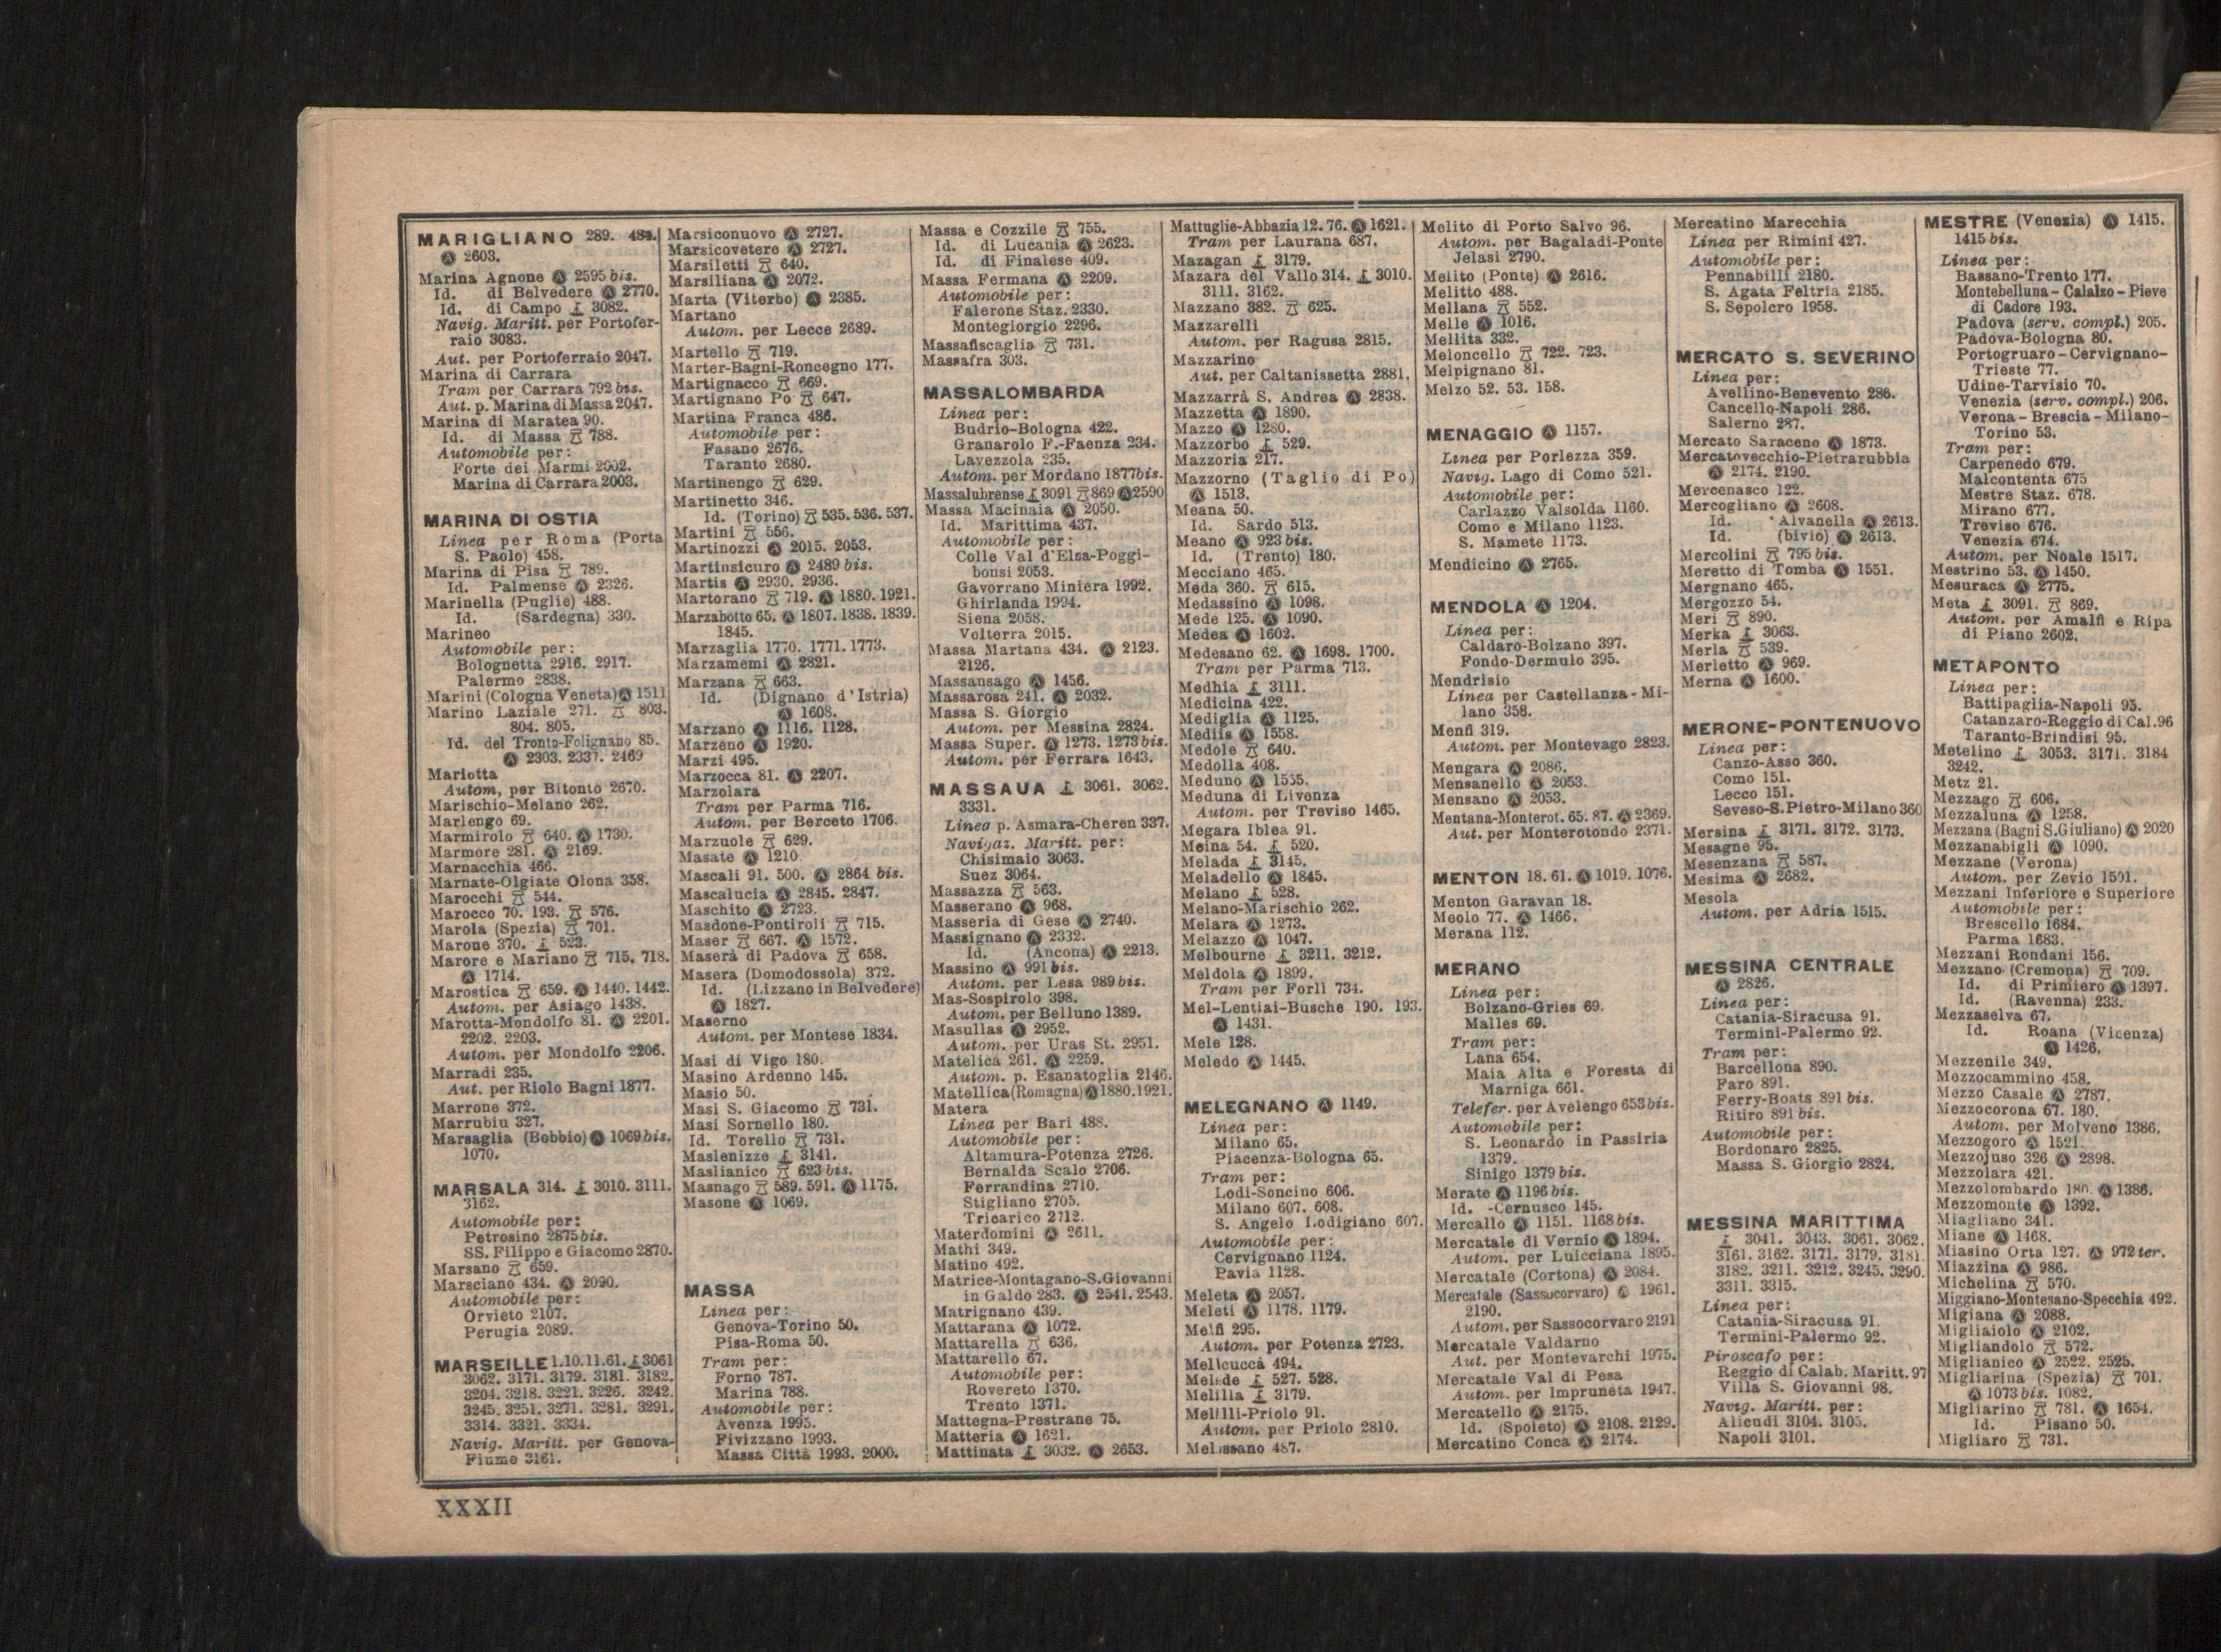 MARIGLIANO 289. 484.
Ⓐ 2603.
Marina Agnone Ⓐ 2595 bis.
Id. di Belvedere Ⓐ 2770.
Id. di Campo 3082.
Navig. Maritt. per Portofer-
raio 3083.
Aut. per Portoferraio 2047.
Marina di Carrara
Tram per Carrara 792 bis.
Aut. p. Marina di Massa 2047.
Marina di Maratea 90.
Id. di Massa 788.
Automobile per:
Forte dei Marmi 2002.
Marina di Carrara 2003.
MARINA DI OSTIA
Linea per Roma (Porta
S. Paolo) 458.
Marina di Pisa 789.
Id. Palmense Ⓐ 2326.
Marinella (Puglie) 488.
Id. (Sardegna) 330.
Marineo
Automobile per:
Bolognetta 2916. 2917.
Palermo 2838.
Marini (Cologna Veneta) Ⓐ 1511
Marino Laziale 271. 803.
804. 805.
Id. del Tronto-Folignano 85.
Ⓐ 2303. 2337. 2469
Mariotta
Autom, per Bitonto 2670.
Marischio-Melano 262.
Marlengo 69.
Marmirolo 640. Ⓐ 1730.
Marmore 281. Ⓐ 2169.
Marnacchia 466.
Marnate-Olgiate Olona 358.
Marocchi 544.
Marocco 70. 193. 576.
Marola (Spezia) 701.
Marone 370. 523.
Marore e Mariano 715. 718.
Ⓐ 1714.
Marostica 659. Ⓐ 1440. 1442.
Autom. per Asiago 1438.
Marotta-Mondolfo 81. Ⓐ 2201.
2202. 2203.
Autom. per Mondolfo 2206.
Marradi 235.
Aut. per Riolo Bagni 1877.
Marrone 372.
Marrubiu 327.
Marsaglia (Bobbio) Ⓐ 1069 bis.
1070.
MARSALA 314. 3010. 3111.
3162.
Automobile per:
Petrosino 2875 bis.
SS. Filippo e Giacomo 2870.
Marsano 659.
Marsciano 434. Ⓐ 2090.
Automobile per:
Orvieto 2107.
Perugia 2089.
MARSEILLE 1.10.11.61. 3061
3062. 3171. 3179. 3181. 3182.
3204. 3218. 3221. 3226. 3242.
3245. 3251. 3271. 3281. 3291.
3314. 3321. 3334.
Navig. Maritt. per Genova-
Fiume 3161.
Marsiconuovo Ⓐ 2727.
Marsicovetere Ⓐ 2727.
Marsiletti 640.
Marsiliana Ⓐ 2072.
Marta (Viterbo) Ⓐ 2385.
Martano
Autom. per Lecce 2689.
Martello 719.
Marter-Bagni-Roncegno 177.
Martignacco 669.
Martignano Po 647.
Martina Franca 486.
Automobile per:
Fasano 2676.
Taranto 2680.
Martinengo 629.
Martinetto 346.
Id. (Torino) 535. 536. 537.
Martini 556.
Martinozzi Ⓐ 2015. 2053.
Martinsicuro Ⓐ 2489 bis.
Martis Ⓐ 2930. 2936.
Martorano 719. Ⓐ 1880. 1921.
Marzabotto 65. Ⓐ 1807. 1838. 1839.
1845.
Marzaglia 1770. 1771. 1773.
Marzamemi Ⓐ 2821.
Marzana 663.
Id. (Dignano d'Istria)
Ⓐ 1608.
Marzano Ⓐ 1116. 1128.
Marzeno Ⓐ 1920.
Marzi 495.
Marzocca 81. Ⓐ 2207.
Marzolara
Tram per Parma 716.
Autom. per Berceto 1706.
Marzuole 629.
Masate Ⓐ 1210
Mascali 91. 500. Ⓐ 2864 bis.
Mascalucia Ⓐ 2845. 2847.
Maschito Ⓐ 2723.
Masdone-Pontiroli 715.
Maser 667. Ⓐ 1572.
Maserà di Padova 658.
Masera (Domodossola) 372.
Id. (Lizzano in Belvedere)
Ⓐ 1827.
Maserno
Autom. per Montese 1834.
Masi di Vigo 180.
Masino Ardenno 145.
Masio 50.
Masi S. Giacomo 731.
Masi Sornello 180.
Id. Torello 731.
Maslenizze 3141.
Maslianico 623 bis.
Masnago 589. 591. Ⓐ 1175.
Masone Ⓐ 1069.
MASSA
Linea per:
Genova-Torino 50.
Pisa-Roma 50.
Tram per:
Forno 787.
Marina 788.
Automobile per:
Avenza 1995.
Fivizzano 1993.
Massa Città 1993. 2000.
Massa e Cozzile 755.
Id. di Lucania Ⓐ 2623.
Id. di Finalese 409.
Massa Fermana Ⓐ 2209.
Automobile per:
Falerone Staz. 2330.
Montegiorgio 2296.
Massafiscaglia 731.
Massafra 303.
MASSALOMBARDA
Linea per:
Budrio-Bologna 422.
Granarolo F.-Faenza 234.
Lavezzola 235.
Autom. per Mordano 1877 bis.
Massalubrense 3091 869 Ⓐ 2590
Massa Macinaia Ⓐ 2050.
Id. Marittima 437.
Automobile per:
Colle Val d'Elsa-Poggi-
bonsi 2053.
Gavorrano Miniera 1992.
Ghirlanda 1994.
Siena 2058.
Volterra 2015.
Massa Martana 434. Ⓐ 2123.
2126.
Massansago Ⓐ 1456.
Massarosa 241. Ⓐ 2032.
Massa S. Giorgio
Autom. per Messina 2824.
Massa Super. Ⓐ 1273. 1273 bis.
Autom. per Ferrara 1643.
MASSAUA 3061. 3062.
3331.
Linea p. Asmara-Cheren 337.
Navigaz. Maritt. per:
Chisimaio 3063.
Suez 3064.
Massazza 563.
Masserano Ⓐ 968.
Masseria di Gese Ⓐ 2740.
Massignano Ⓐ 2332.
Id. (Ancona) Ⓐ 2213.
Massino Ⓐ 991 bis.
Autom. per Lesa 989 bis.
Mas-Sospirolo 398.
Autom. per Belluno 1389.
Masullas Ⓐ 2952.
Autom. per Uras St. 2951.
Matelica 261. Ⓐ 2259.
Autom. p. Esanatoglia 2146.
Matellica (Romagna) Ⓐ 1880. 1921.
Matera
Linea per Bari 488.
Automobile per:
Altamura-Potenza 2726.
Bernalda Scalo 2706.
Ferrandina 2710.
Stigliano 2705.
Tricarico 2712.
Materdomini Ⓐ 2611.
Mathi 349.
Matino 492.
Matrice-Montagano-S.Giovanni
in Galdo 283. Ⓐ 2541. 2543.
Matrignano 439.
Mattarana Ⓐ 1072.
Mattarella 636.
Mattarello 67.
Automobile per:
Rovereto 1370.
Trento 1371.
Mattegna-Prestrane 75.
Matteria Ⓐ 1621.
Mattinata 3032. Ⓐ 2653.
Mattuglie-Abbazia 12. 76. Ⓐ 1621.
Tram per Laurana 687.
Mazagan 3179.
Mazara del Vallo 314. 3010.
3111. 3162.
Mazzano 382. 625.
Mazzarelli
Autom. per Ragusa 2815.
Mazzarino
Aut. per Caltanissetta 2881.
Mazzarrà S. Andrea Ⓐ 2838.
Mazzetta Ⓐ 1890.
Mazzo Ⓐ 1280.
Mazzorbo 529.
Mazzoria 217.
Mazzorno (Taglio di Po)
Ⓐ 1513.
Meana 50.
Id. Sardo 513.
Meano Ⓐ 923 bis.
Id. (Trento) 180.
Mecciano 465.
Meda 360. 615.
Medassino Ⓐ 1098.
Mede 125. Ⓐ 1090.
Medea Ⓐ 1602.
Medesano 62. Ⓐ 1698. 1700.
Tram per Parma 713.
Medhia 3111.
Medicina 422.
Mediglia Ⓐ 1125.
Mediis Ⓐ 1558.
Medole 640.
Medolla 408.
Meduno Ⓐ 1555.
Meduna di Livenza
Autom. per Treviso 1465.
Megara Iblea 91.
Meina 54. 520.
Melada 3145.
Meladello Ⓐ 1845.
Melano 528.
Melano-Marischio 262.
Melara Ⓐ 1273.
Melazzo Ⓐ 1047.
Melbourne 3211. 3212.
Meldola Ⓐ 1899.
Tram per Forlì 734.
Mel-Lentiai-Busche 190. 193.
Ⓐ 1431.
Mele 128.
Meledo Ⓐ 1445.
MELEGNANO Ⓐ 1149.
Linea per:
Milano 65.
Piacenza-Bologna 65.
Tram per:
Lodi-Soncino 606.
Milano 607. 608.
S. Angelo Lodigiano 607.
Automobile per:
Cervignano 1124.
Pavia 1128.
Meleta Ⓐ 2057.
Meleti Ⓐ 1178. 1179.
Melfi 295.
Autom. per Potenza 2723.
Melicuccà 494.
Melide 527. 528.
Melilla 3179.
Melilli-Priolo 91.
Autom. per Priolo 2810.
Melissano 487.
Melito di Porto Salvo 96.
Autom. per Bagaladi-Ponte
Jelasi 2790.
Melito (Ponte) Ⓐ 2616.
Melitto 488.
Mellana 552.
Melle Ⓐ 1016.
Mellita 332.
Meloncello 722. 723.
Melpignano 81.
Melzo 52. 53. 158.
MENAGGIO Ⓐ 1157.
Linea per Porlezza 359.
Navig. Lago di Como 521.
Automobile per:
Carlazzo Valsolda 1160.
Como e Milano 1123.
S. Mamete 1173.
Mendicino Ⓐ 2765.
MENDOLA Ⓐ 1204.
Linea per:
Caldaro-Bolzano 397.
Fondo-Dermulo 395.
Mendrisio
Linea per Castellanza-Mi-
lano 358.
Menfi 319.
Autom. per Montevago 2823.
Mengara Ⓐ 2086.
Mensanello Ⓐ 2053.
Mensano Ⓐ 2053.
Mentana-Monterot. 65. 87. Ⓐ 2369.
Aut. per Monterotondo 2371.
MENTON 18. 61. Ⓐ 1019. 1076.
Menton Garavan 18.
Meolo 77. Ⓐ 1466.
Merana 112.
MERANO
Linea per:
Bolzano-Gries 69.
Malles 69.
Tram per:
Lana 654.
Maia Alta e Foresta di
Marniga 661.
Telefer. per Avelengo 653 bis.
Automobile per:
S. Leonardo in Passiria
1379.
Sinigo 1379 bis.
Merate Ⓐ 1196 bis.
Id. -Cernusco 145.
Mercallo Ⓐ 1151. 1168 bis.
Mercatale di Vernio Ⓐ 1894.
Autom. per Luicciana 1895.
Mercatale (Cortona) Ⓐ 2084.
Mercatale (Sassocorvaro) Ⓐ 1961.
2190.
Autom. per Sassocorvaro 2191
Mercatale Valdarno
Aut. per Montevarchi 1975.
Mercatale Val di Pesa
Autom. per Impruneta 1947.
Mercatello Ⓐ 2175.
Id. (Spoleto) Ⓐ 2108. 2129.
Mercatino Conca Ⓐ 2174.
Mercatino Marecchia
Linea per Rimini 427.
Automobile per:
Pennabilli 2180.
S. Agata Feltria 2185.
S. Sepolcro 1958.
MERCATO S. SEVERINO
Linea per:
Avellino-Benevento 286.
Cancello-Napoli 286.
Salerno 287.
Mercato Saraceno Ⓐ 1873.
Mercatovecchio-Pietrarubbia
Ⓐ 2174. 2190.
Mercenasco 122.
Mercogliano Ⓐ 2608.
Id. Alvanella Ⓐ 2613.
Id. (bivio) Ⓐ 2613.
Mercolini 795 bis.
Meretto di Tomba Ⓐ 1551.
Mergnano 465.
Mergozzo 54.
Meri 890.
Merka 3063.
Merla 539.
Merletto Ⓐ 969.
Merna Ⓐ 1600.
MERONE-PONTENUOVO
Linea per:
Canzo-Asso 360.
Como 151.
Lecco 151.
Seveso-S.Pietro-Milano 360
Mersina 3171. 3172. 3173.
Mesagne 95.
Mesenzana 587.
Mesima Ⓐ 2682.
Mesola
Autom. per Adria 1515.
MESSINA CENTRALE
Ⓐ 2826.
Linea per:
Catania-Siracusa 91.
Termini-Palermo 92.
Tram per:
Barcellona 890.
Faro 891.
Ferry-Boats 891 bis.
Ritiro 891 bis.
Automobile per:
Bordonaro 2825.
Massa S. Giorgio 2824.
MESSINA MARITTIMA
3041. 3043. 3061. 3062.
3161. 3162. 3171. 3179. 3181.
3182. 3211. 3212. 3245. 3290.
3311. 3315.
Linea per:
Catania-Siracusa 91.
Termini-Palermo 92.
Piroscafo per:
Reggio di Calab. Maritt. 97
Villa S. Giovanni 98.
Navig. Maritt. per:
Alicudi 3104. 3105.
Napoli 3101.
MESTRE (Venezia) Ⓐ 1415.
1415 bis.
Linea per:
Bassano-Trento 177.
Montebelluna-Calalzo-Pieve
di Cadore 193.
Padova (serv. compl.) 205.
Padova-Bologna 80.
Portogruaro-Cervignano-
Trieste 77.
Udine-Tarvisio 70.
Venezia (serv. compl.) 206.
Verona-Brescia-Milano-
Torino 53.
Tram per:
Carpenedo 679.
Malcontenta 675
Mestre Staz. 678.
Mirano 677.
Treviso 676.
Venezia 674.
Autom. per Noale 1517.
Mestrino 53. Ⓐ 1450.
Mesuraca Ⓐ 2775.
Meta 3091. 869.
Autom. per Amalfi e Ripa
di Piano 2602.
METAPONTO
Linea per:
Battipaglia-Napoli 95.
Catanzaro-Reggio di Cal. 96
Taranto-Brindisi 95.
Metelino 3053. 3171. 3184
3242.
Metz 21.
Mezzago 606.
Mezzaluna Ⓐ 1258.
Mezzana (Bagni S.Giuliano) Ⓐ 2020
Mezzanabigli Ⓐ 1090.
Mezzane (Verona)
Autom. per Zevio 1501.
Mezzani Inferiore e Superiore
Automobile per:
Brescello 1684.
Parma 1683.
Mezzani Rondani 156.
Mezzano (Cremona) 709.
Id. di Primiero Ⓐ 1397.
Id. (Ravenna) 233.
Mezzaselva 67.
Id. Roana (Vicenza)
Ⓐ 1426.
Mezzenile 349.
Mezzocammino 458.
Mezzo Casale Ⓐ 2787.
Mezzocorona 67. 180.
Autom. per Molveno 1386.
Mezzogoro Ⓐ 1521.
Mezzojuso 326 Ⓐ 2898.
Mezzolara 421.
Mezzolombardo 180. Ⓐ 1386.
Mezzomonte Ⓐ 1392.
Miagliano 341.
Miane Ⓐ 1468.
Miasino Orta 127. Ⓐ 972 ter.
Miazzina Ⓐ 986.
Michelina 570.
Miggiano-Montesano-Specchia 492.
Migiana Ⓐ 2088.
Migliaiolo Ⓐ 2102.
Migliandolo 572.
Miglianico Ⓐ 2522. 2525.
Migliarina (Spezia) 701.
Ⓐ 1073 bis. 1082.
Migliarino 781. Ⓐ 1654.
Id. Pisano 50.
Migliaro 731.
XXXII